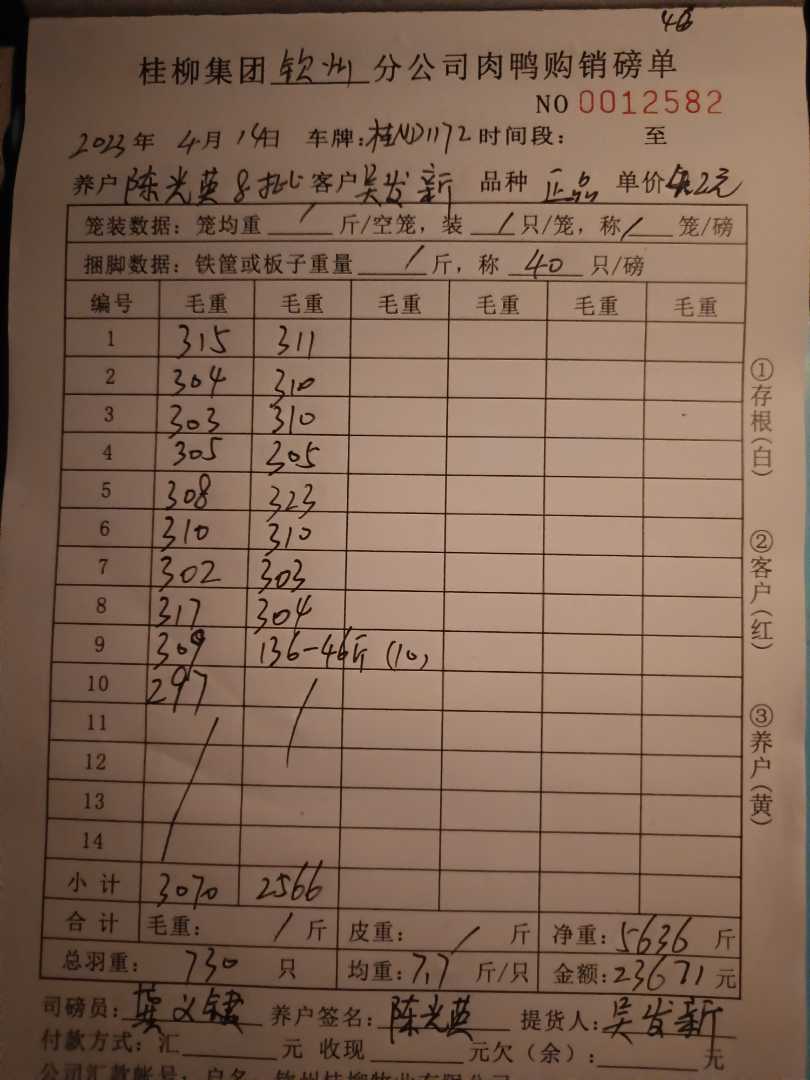 46
桂柳集团钦州分公司肉鸭购销磅单
NO 0012582
2023年 4月 14日 车牌:桂ND1172 时间段: 至
养户陈光英 客户吴发新 品种 正品 单价4.2元
笼装数据:笼均重 / 斤/空笼,装 / 只/笼,称 / 笼/磅
捆脚数据:铁筐或板子重量 / 斤,称 40 只/磅
编号 毛重 毛重 毛重 毛重 毛重 毛重
1 315 311
2 304 310
3 303 310
4 305 305
5 308 323
6 310 310
7 302 303
8 317 304
9 309 136-46斤(10)
10 297 /
11 /
12
13
14
小计 3070 2566
合计 毛重: / 斤 皮重: / 斤 净重:5636 斤
总羽重: 730 只 均重:7.7 斤/只 金额:23671元
司磅员:龚义 养户签名:陈光英 提货人:吴发新
付款方式:汇 元 收现 元欠(余): 元
公司汇款帐号:户名:钦州桂柳牧业有限公司
①存根(白)
②客户(红)
③养户(黄)